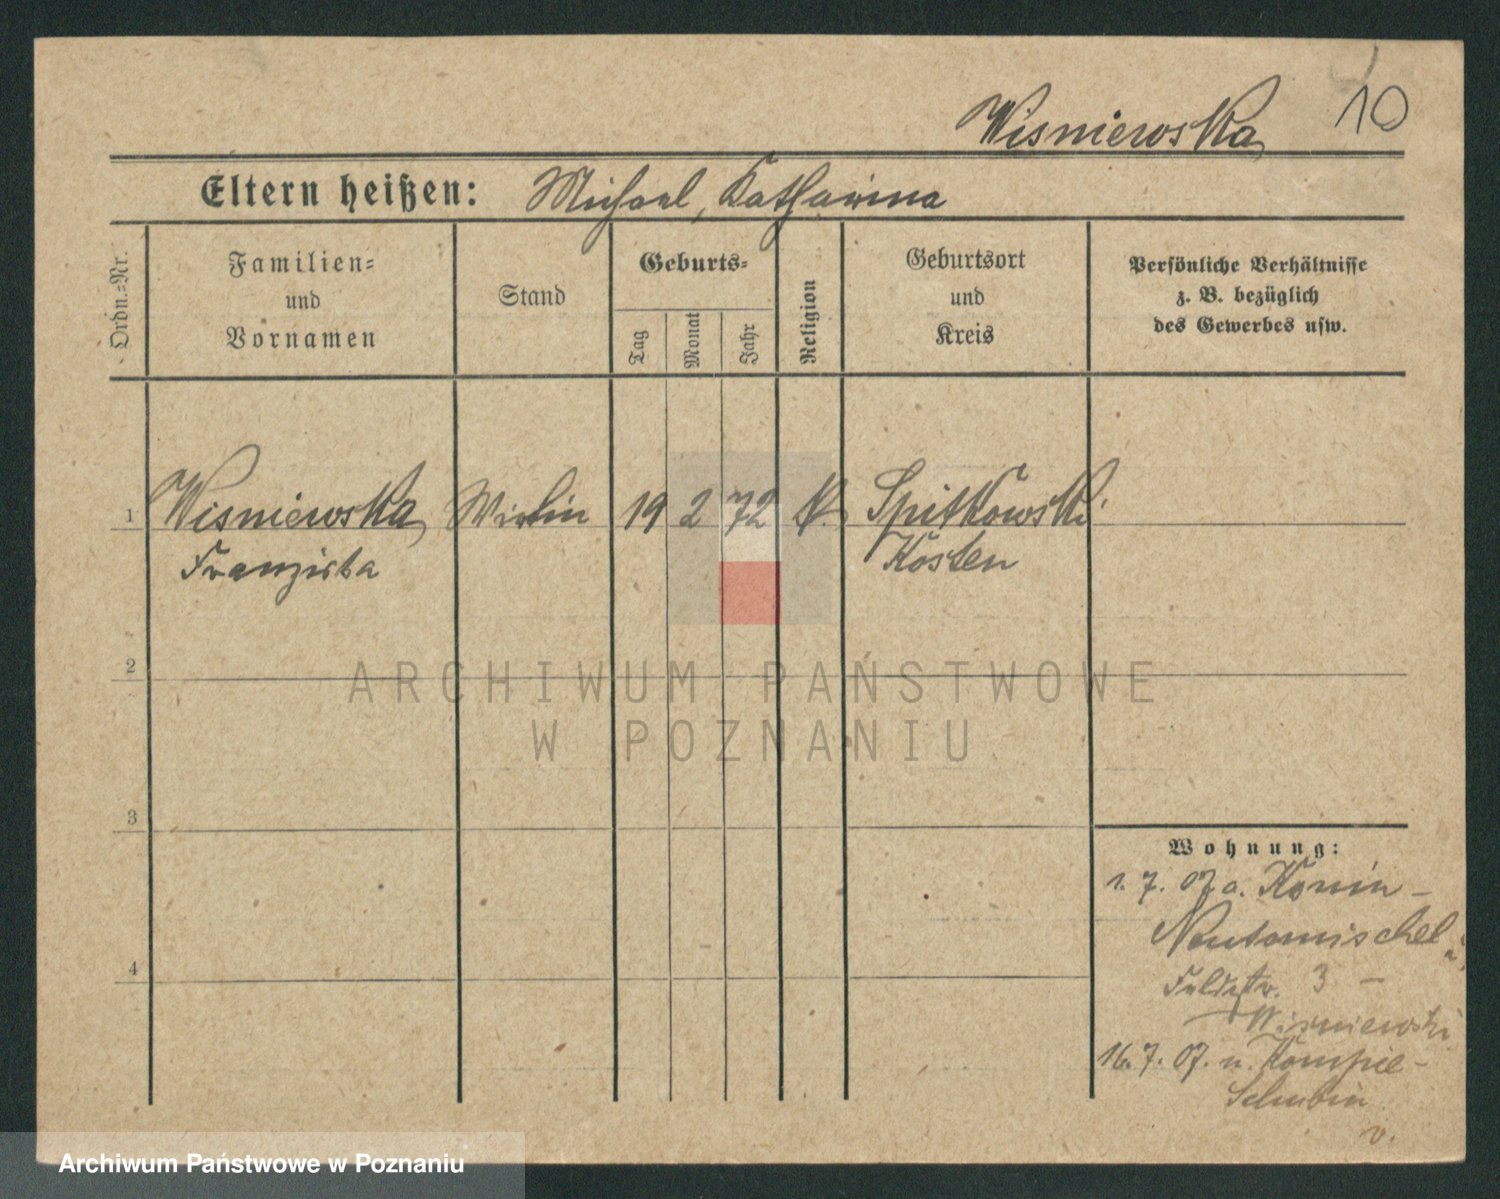 10
Wisniewska
Eltern heißen: Michael, Katharina
Ordn.=Nr.
Familien=
und
Vornamen
Stand
Geburts=
Tag
Monat
Jahr
Religion
Geburtsort
und
Kreis
Persönliche Verhältnisse
z. B. bezüglich
des Gewerbes usw.
1 Wisniewska Wirtin 19 2 72 k. Spitkowski
Franziska Kosten
2
3
4
Wohnung:
1. 7. 07 a. Konin –
Neutomischel
Feldstr. 3 –
Wisniewski
16. 7. 07. n.
Schubin
v.
ARCHIWUM PAŃSTWOWE
W POZNANIU
Archiwum Państwowe w Poznaniu